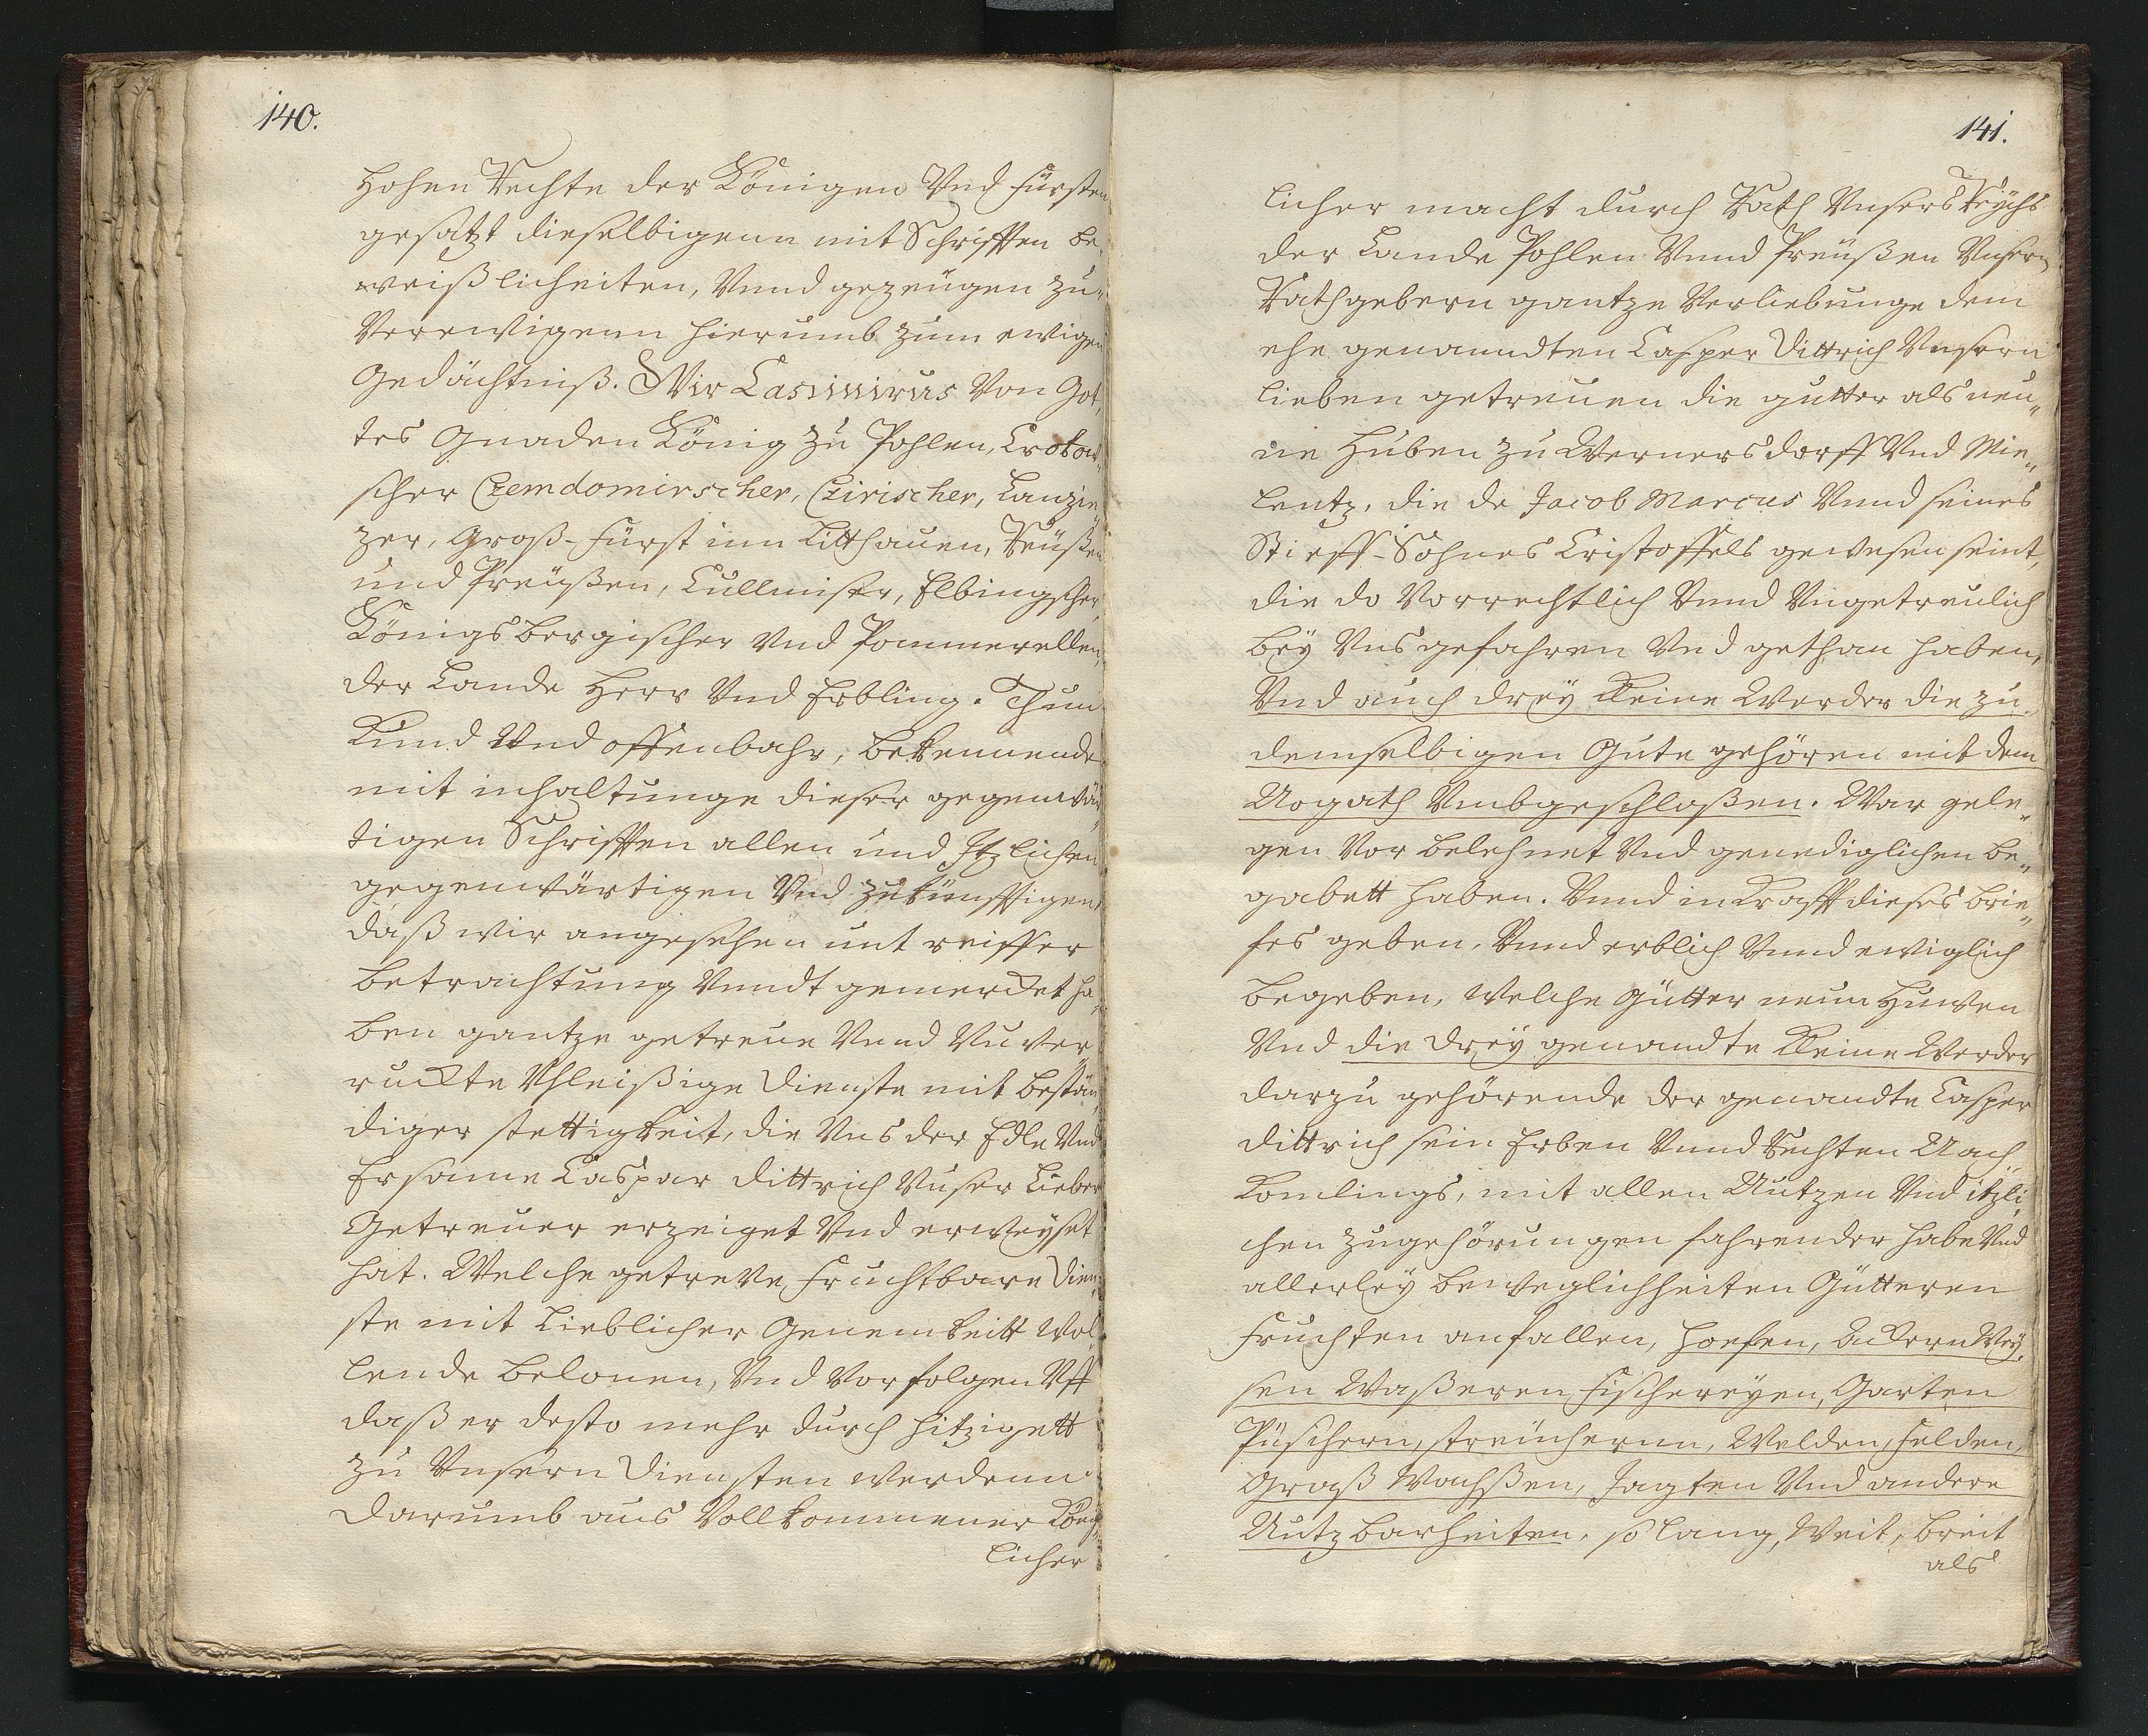 140.
Hohen Rechte der Königen Vnd Fürsten
gesatzt dieselbigenn mit Schrifften be„
weißlicheiten, Vnnd gezeügen zu„
Verewigenn hierumb zum ewigen
Gedächtniß. Wir Casimirus Von Got„
tes Gnaden König zu Pohlen, Crokow„
scher Czemdomirscher, Czirischer, Lanzie„
zer, Groß-Fürst inn Litthauen, Reüßen
und Preüßen, Cullmiser, Elbingscher,
Königsbergischer Vnd Pommerellen,
der Lande Herr Vnd Erbling. Thun
Kund Vnd offenbahr, bekennende
mit inhaltunge dieser gegenwär„
tigen Schrifften allen und Itzlichen
gegenwärtigen Vnd zukünfftigen,
daß wir angesehen mit reiffer
betrachtung Vnndt gemercket ha„
ben gantze getreue Vnnd Vnver„
ruckte Vhleißige Dienste mit bestän„
diger stettigkeit, die Vns der Edle Vnd
Ersame Caspar Dittrich Vnser Lieber
Getreuer erzeiget Vnd erweyset
hat. Welche getreve Fruchtbare Dien„
ste mit Lieblicher Genemkeitt Wol„
lende belonen, Vnd Vorfolgen Vff
daß er desto mehr durch hitzigett
zu Vnsern Diensten werdenn
Darumb aus Vollkommener König„
licher
141.
licher macht durch Rath Vnsers Reychs
der Lande Pohlen Vnnd Preüßen Vnsern
Rathgebern gantze Verliebunge dem
ehe genanndten Casper Dittrich Vnsern
lieben getreuen die gutter als neu„
ne Huben zu Wernersdorff Vnd Mie„
lentz, die de Jacob Marcus Vnnd seines
Stieff-Sohnes Cristoffels gewesen seint,
die do Vorrechtlich Vnnd Vngetreulich
bey Vns gefahren Vnd gethan haben,
Vnd auch drey Kleine Werder die zu„
demselbigen Gute gehören mit dem
Nogath Vmbgeschloßen. War gele„
gen Vor belehnet Vnd genediglichen be„
gabett haben. Vnnd in Krafft dieses brie„
fes geben, Vnnd erblich Vnnd ewiglich
begeben, Welche Gütter neun Huwen
Vnd die drey genandte Kleine Werder
darzu gehörende der genandte Casper
Dittrich sein Erben Vnnd Rechten Nach
Komlings, mit allen Nutzen Vnd itzli„
chen zugehörungen fahrender habe Vnd
allerley beweglichheiten Güttern
Fruchten anfallen, Hoefen, Ackern Wey„
sen Waßeren, Fischereyen, Garten
Püschern, streüchernn, Welden, Felden,
Graß Wachßen, Jagten Vnd andere
Nutzbarheiten, so lang, Weit, breit
als